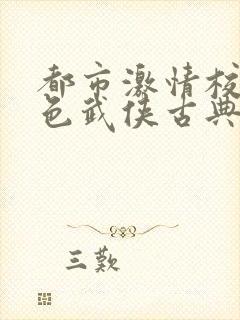 都市激情校
色武侠古典
三歎